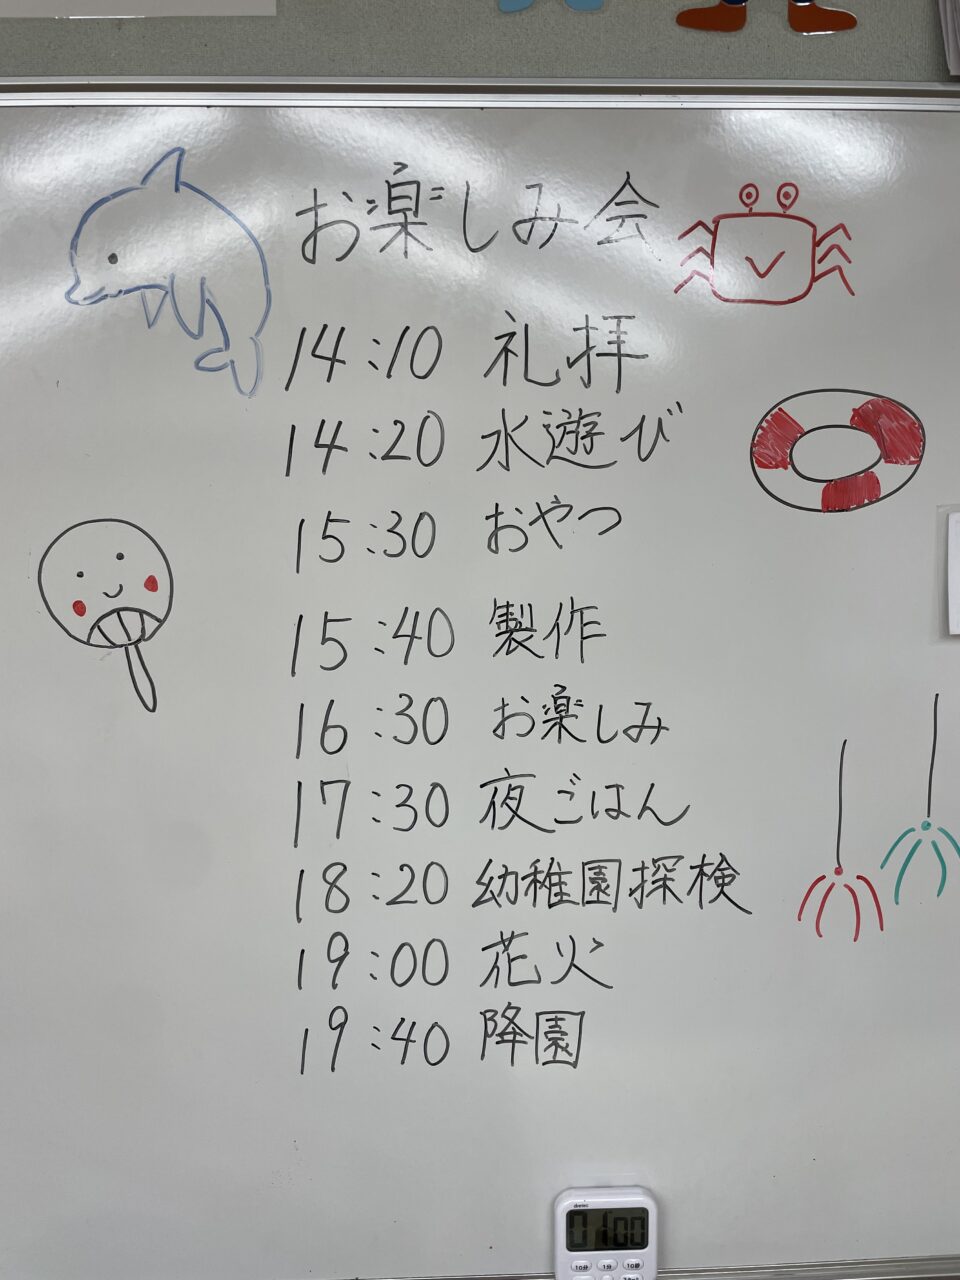 お楽しみ会
14:10 礼拝
14:20 水遊び
15:30 おやつ
15:40 製作
16:30 お楽しみ
17:30 夜ごはん
18:20 幼稚園探検
19:00 花火
19:40 降園
dretec
01:00
10分 1分 10秒